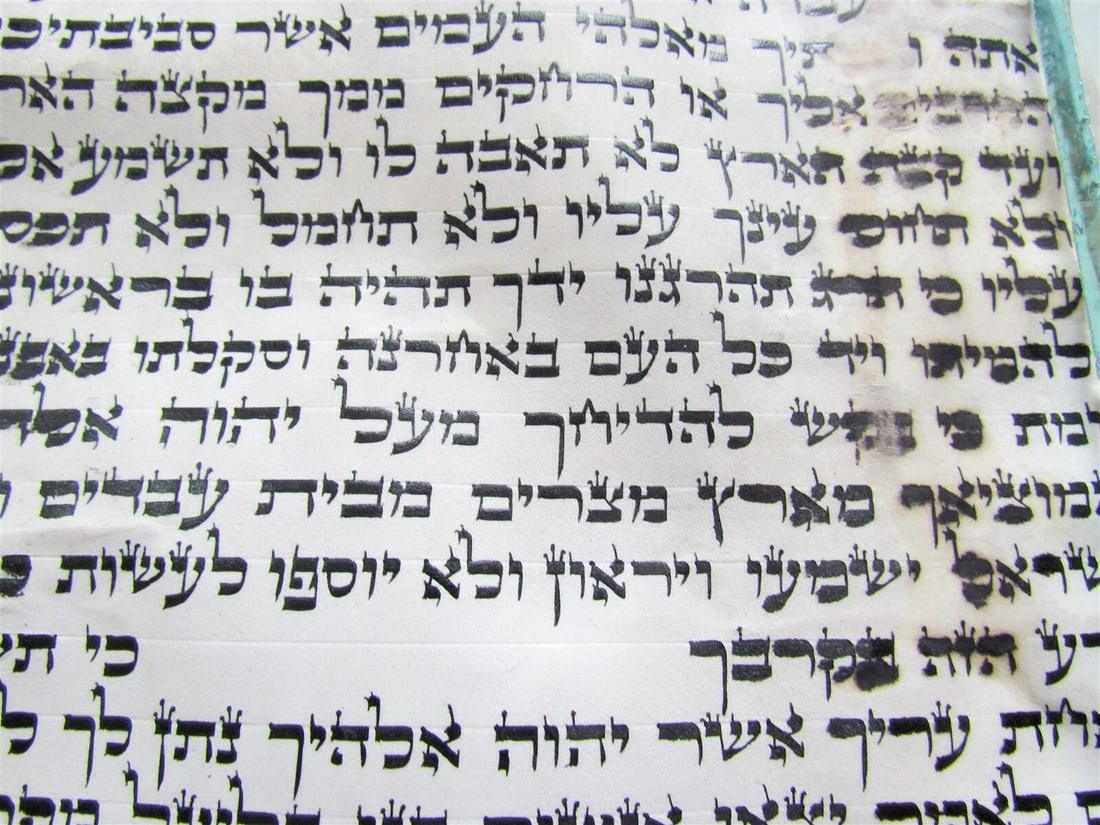 אתה ו תיך מאלהי העמים אשר סביבתיכ
אליך או הרחקים ממך מקצה האר
ועד קצה הארץ לא תאבה לו ולא תשמע אל
ולא תחוס עינך עליו ולא תחמל ולא תכס
עליו כי הרג תהרגנו ידך תהיה בו בראשונ
להמיתו ויד כל העם באחרנה וסקלתו באבנ
ומת כי בקש להדיחך מעל יהוה אלה
המוציאך מארץ מצרים מבית עבדים ו
ישמעו ויראון ולא יוספו לעשות כ
רע הזה בקרבך כי תש
אחת עריך אשר יהוה אלהיך נתן לך ל
לאמר יצאו אנשים